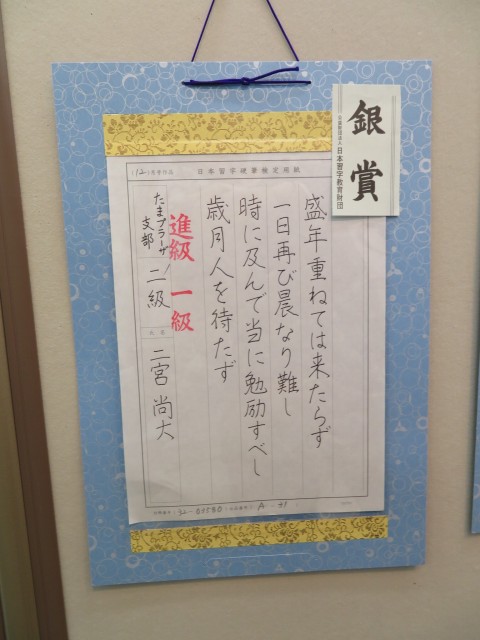 銀賞
公益財団法人 日本習字教育財団
(12)月号作品
日本習字硬筆検定用紙
盛年重ねては来たらず
一日再び晨なり難し
時に及んで当に勉励すべし
歳月人を待たず
進級 一級
たまプラーザ支部
二級
二宮 尚大